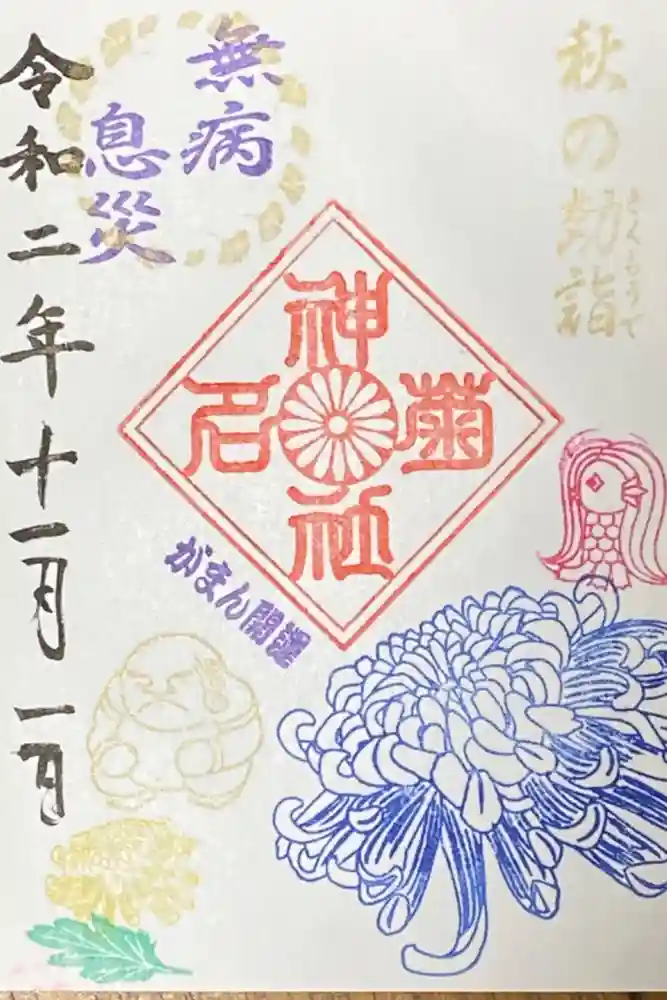 秋の朔詣
さくもうで
無病
息災
菊名
神社
がまん開運
令和二年十一月一日